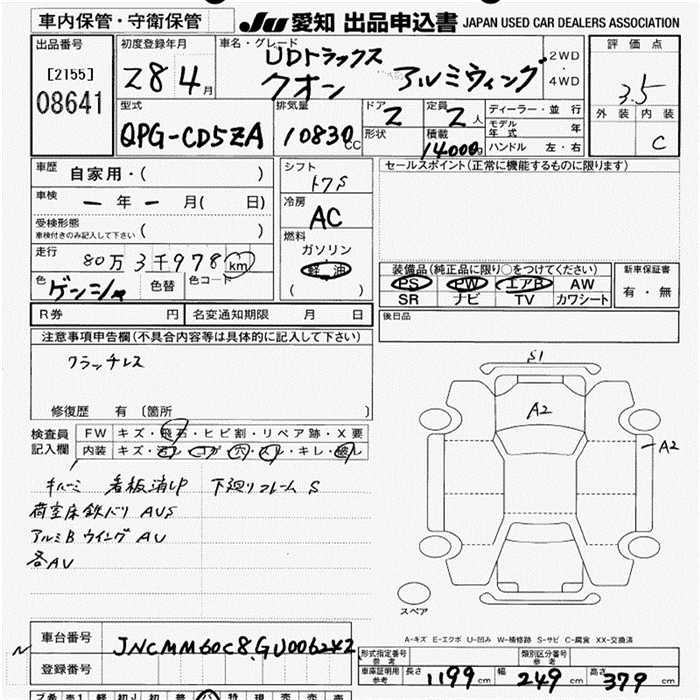 車内保管・守衛保管
JU 愛知 出品申込書 JAPAN USED CAR DEALERS ASSOCIATION
出品番号
[2155]
08641
初度登録年月
28 4月
車名・グレード
UDトラックス
クオン アルミウィング
2WD
4WD
評価点
3.5
外装 内装
C
型式
QPG-CD5ZA
排気量
10830cc
ドア 2
形状
定員 2人
積載
14000
ディーラー・並行
モデル年式 年
ハンドル 左・右
車歴 自家用・( )
車検 ー年ー月( 日)
受検形態
車検付きのみ記入して下さい ( )
走行 80万3千978 km
色 色替 色コード
シフト
冷房
AC
燃料
ガソリン
軽油
( )
セールスポイント(正常に機能するものに限ります)
装備品(純正品に限り○をつけてください)
PS PW エアB AW
SR ナビ TV カワシート
新車保証書
有・無
R券 円 名変通知期限 月 日
後日品
注意事項申告欄(不具合内容等は具体的に記入して下さい)
クラッチレス
修復歴 有 〔箇所 〕
検査員
記入欄
FW キズ・飛石・ヒビ割・リペア跡・X要
内装 キズ・汚レ・コゲ・穴・スレ・キレ・破レ
看板消し 下廻りフレームS
荷室床鉄バリ AUS
アルミBウイングAU
各AU
S1
A2
A2
スペア
A-キズ E-エクボ U-凹み W-補修跡 S-サビ C-腐食 XX-交換済
車台番号
登録番号
形式指定番号 参考
類別区分番号 参考
車庫証明用 参考
長さ 1199cm 幅 249cm 高さ 379cm